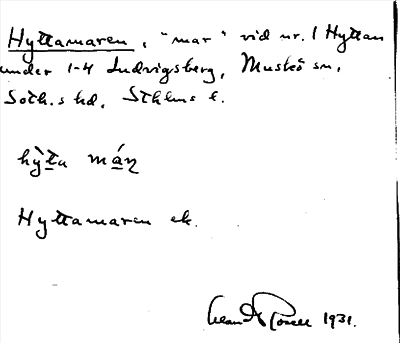 Hyttamaren, "mar" vid nr. 1 Hyttan
under 1-4 Ludvigsberg, Muskö sn,
Soth.s hd, Sthlms l.
hỳta máɳ
Hyttamaren ek.
1931.